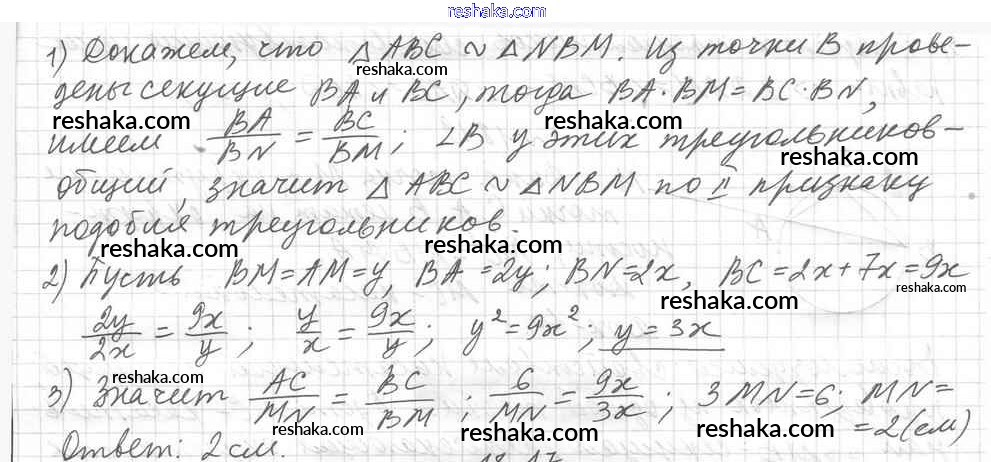 reshaka.com
1) Докажем, что △ ABC ~ △ NBM. Из точки B прове-
reshaka.com
дены секущие BA и BC, тогда BA · BM = BC · BN,
reshaka.com reshaka.com
имеем BA/BN = BC/BM; ∠B у этих треугольников -
reshaka.com
общий, значит △ ABC ~ △ NBM по II признаку
подобия треугольников.
reshaka.com reshaka.com
2) Пусть BM = AM = y, BA = 2y; BN = 2x, BC = 2x + 7x = 9x
reshaka.com reshaka.com
2y/2x = 9x/y; y/x = 9x/y; y² = 9x²; y = 3x
reshaka.com
3) Значит AC/MN = BC/BM; 6/MN = 9x/3x; 3MN = 6; MN =
= 2 (см)
reshaka.com reshaka.com reshaka.com
Ответ: 2 см.